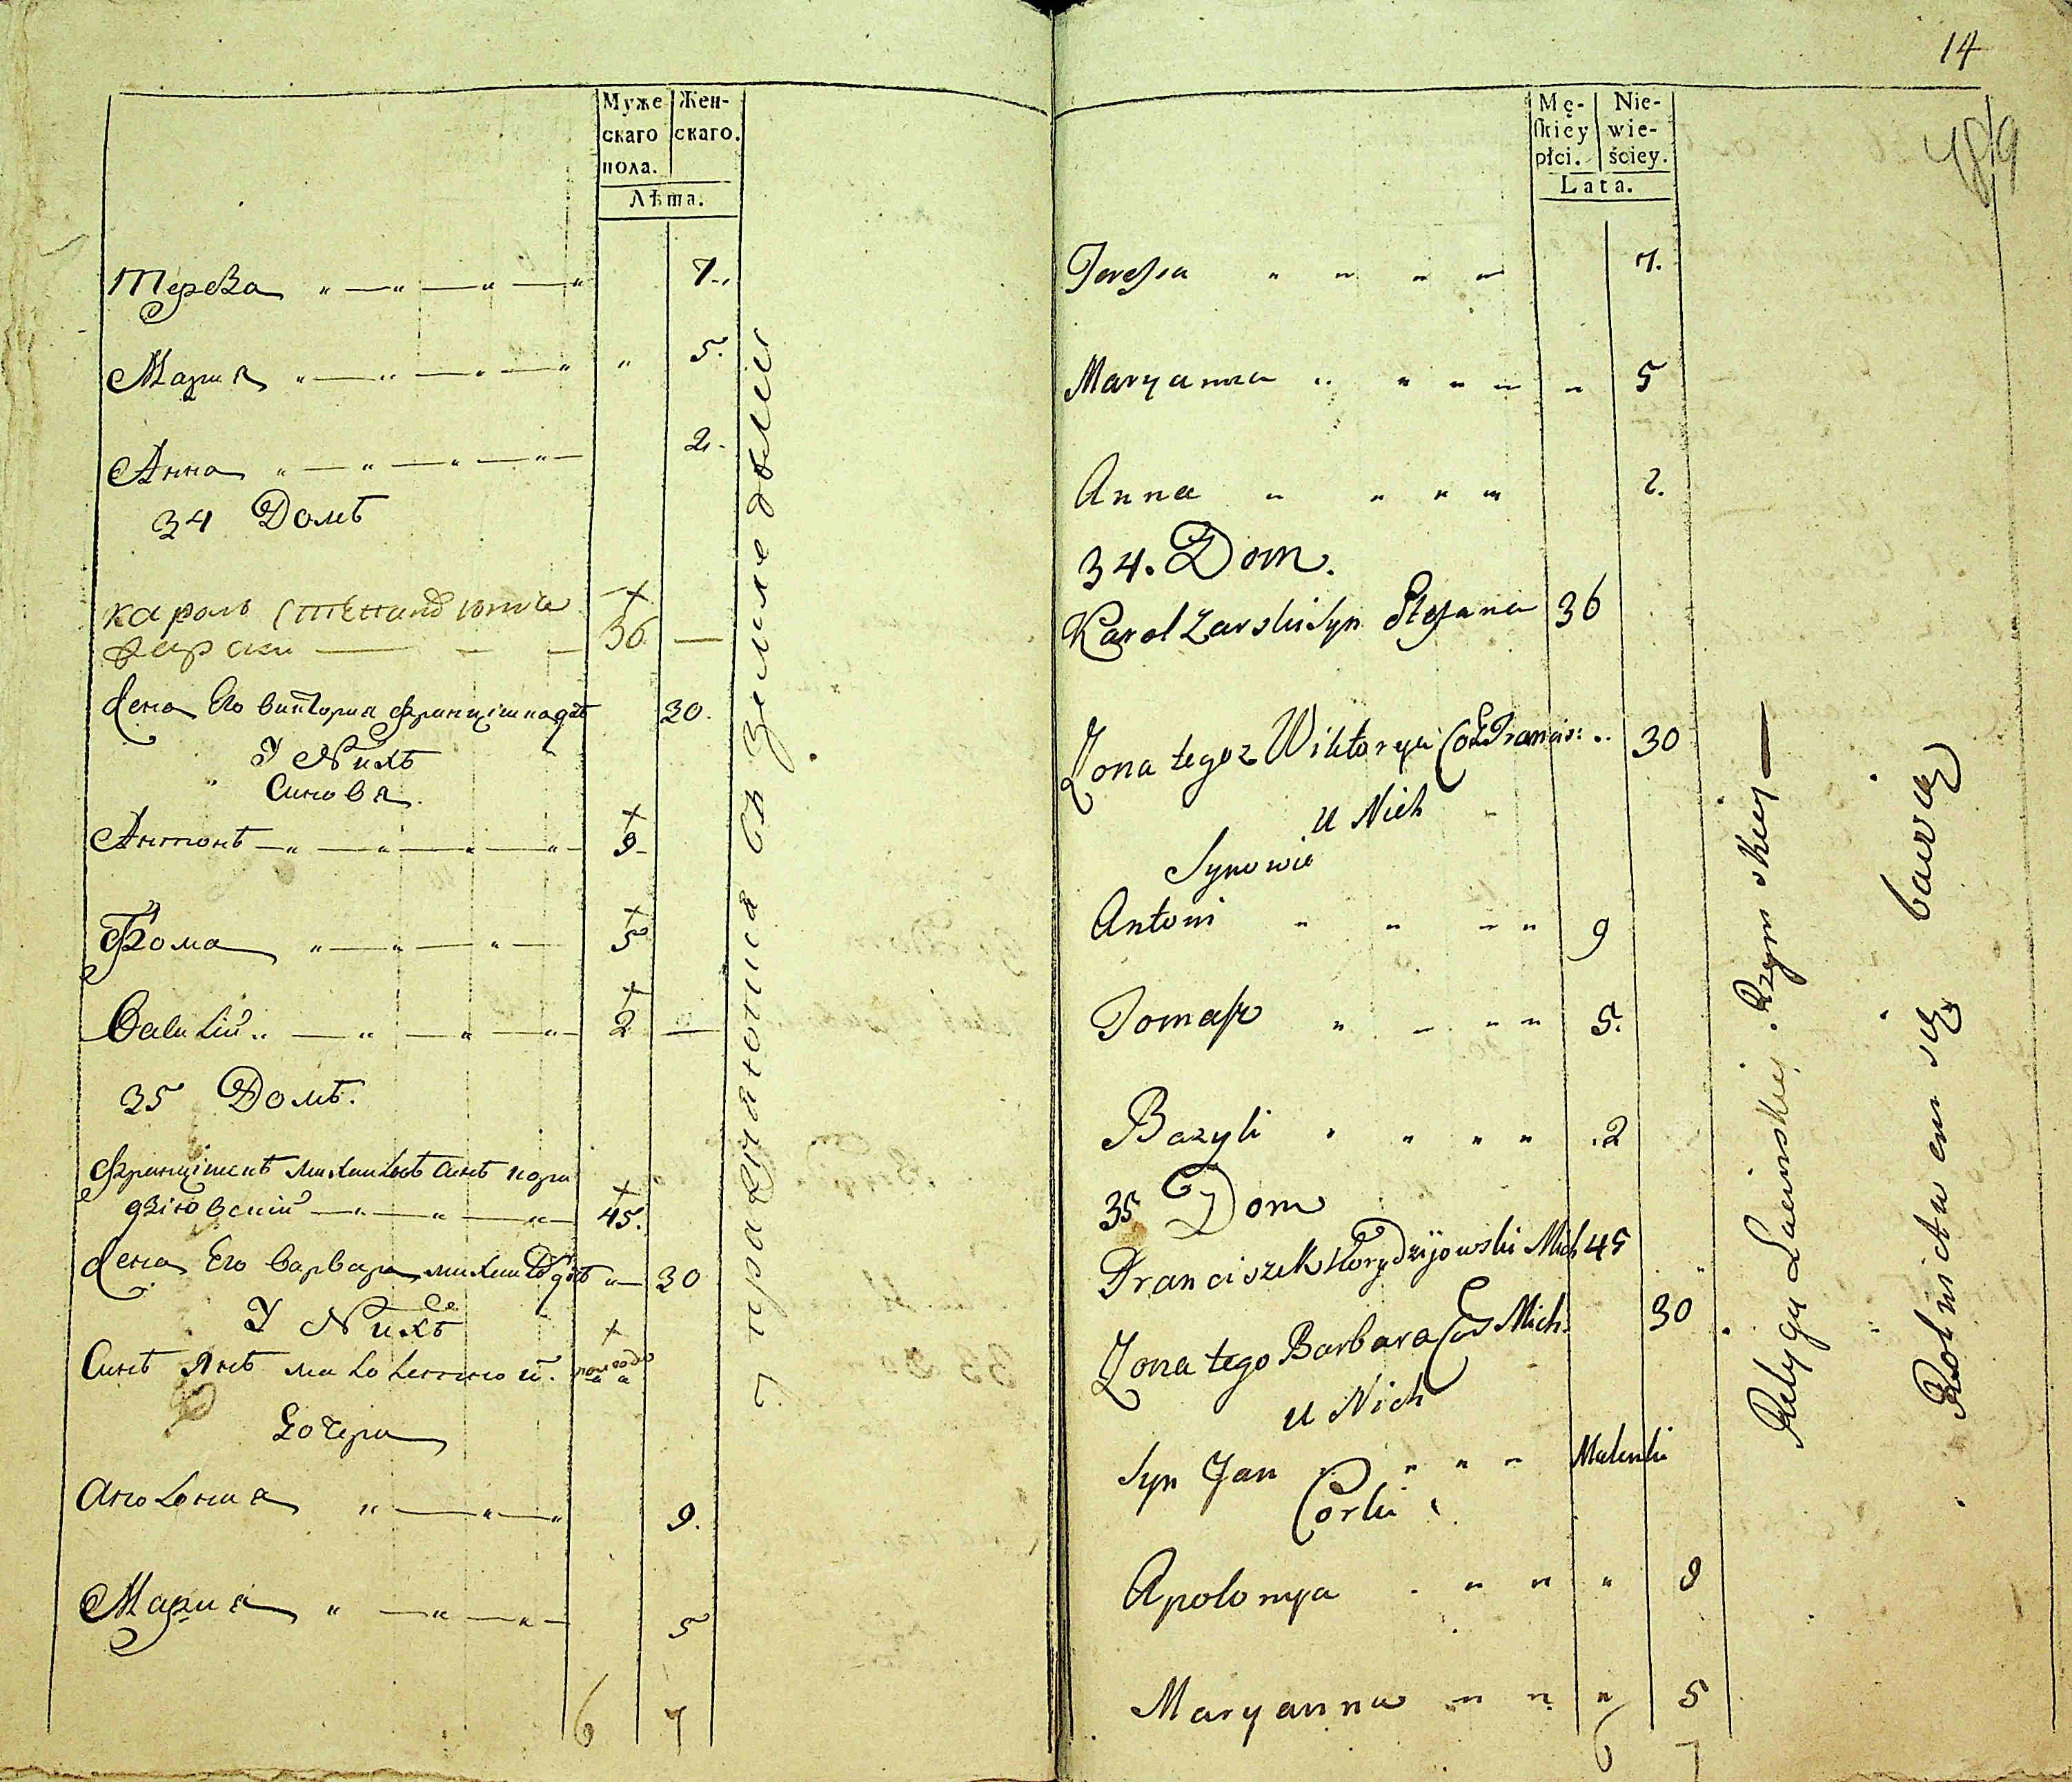 Муже
скаго
пола.
Жен-
скаго.
Лѣта.
Тереза 7.
Мария 5.
Анна 2.
34 Домъ
Кароль
Жарски 36
Жена Его Виктория Францишка дъ 30.
У Нихъ
Синовя.
Антонъ 9
Фома 5
Василий 2
35 Домъ.
Францишекъ Михаиловъ синъ Кори
дзіовский 45.
Жена Его Варвара Михаил дъ 30
У Нихъ
Синъ Янъ малолетной. пол года
Дочери
Аполония 9.
Мария 5
6 7
упражняются въ земледелии
14
489
Mę-
skiéy
płci.
Nie-
wie-
ściey.
Lata.
Teressa 7.
Maryanna 5
Anna 2.
34. Dom.
Karol Zarski Syn Stefana 36
Zona tegoz Wiktorya Cor Francis: 30
U Nich
Synowie
Antoni 9
Tomasz 5.
Bazyli 2
35 Dom
Franciszek Korydzijowski Mich 45
Zona tego Barbara Cor Mich: 30
U Nich
Syn Jan Malenki
Corki
Apolonya 9
Maryanna 5
6 7
Religyi Lacinskiej Rzymskiey
Rolnictwem się bawią